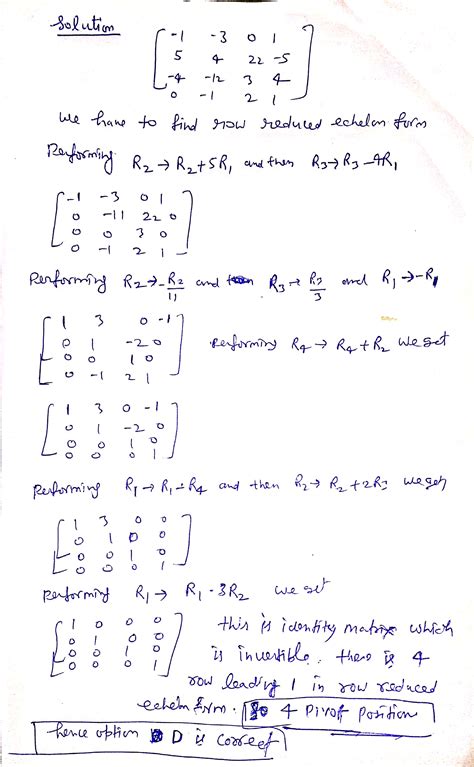 Solution
-1 -3 0 1
5 4 22 -5
-4 -12 3 4
0 -1 2 1
We have to find row reduced echelon form
Performing R2 → R2+5R1 and then R3→R3-4R1
-1 -3 0 1
0 -11 22 0
0 0 3 0
0 -1 2 1
Performing R2→-R2/11 and then R3→ R3/3 and R1→-R1
1 3 0 -1
0 1 -2 0
0 0 1 0
0 -1 2 1
Performing R4→ R4+R2 we get
1 3 0 -1
0 1 -2 0
0 0 1 0
0 0 0 1
Performing R1→R1+R4 and then R2→ R2+2R3 we get
1 3 0 0
0 1 0 0
0 0 1 0
0 0 0 1
Performing R1→ R1-3R2 we get
1 0 0 0
0 1 0 0
0 0 1 0
0 0 0 1
this is identity matrix which
is invertible. there is 4
row leading 1 in row reduced
echelon form. So 4 Pivot Position
hence option D is correct